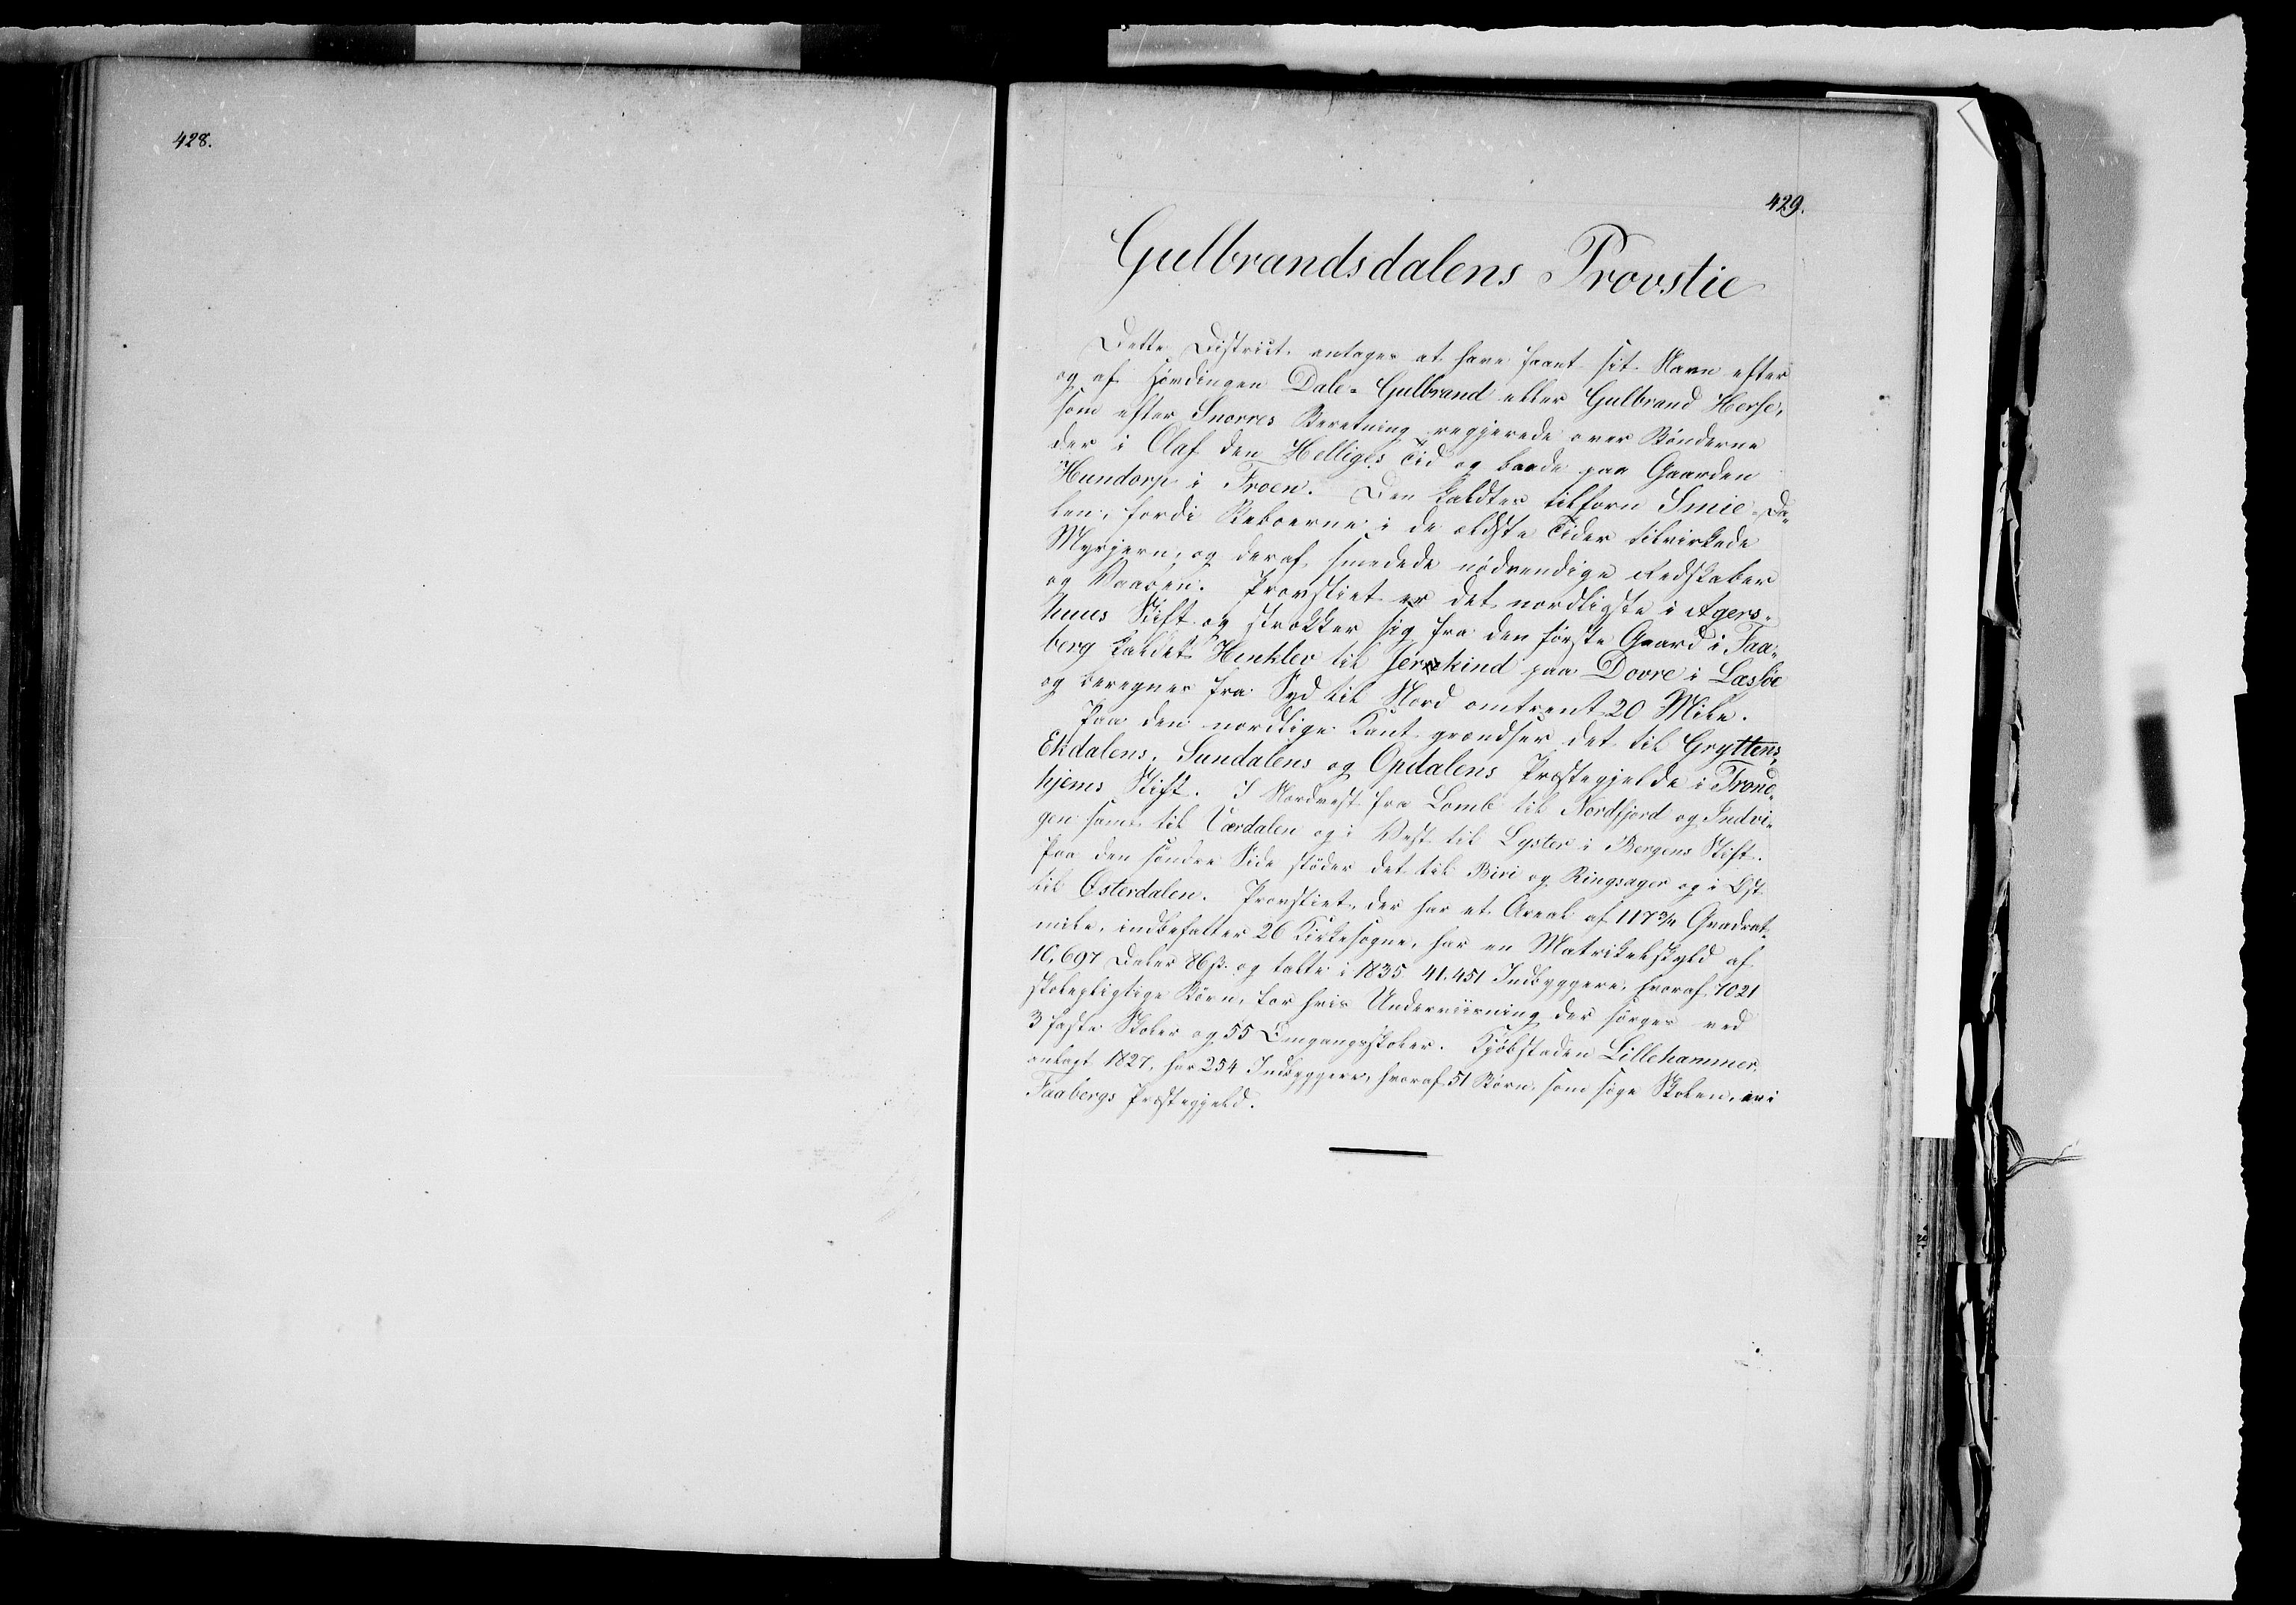 428.
429.
Gulbrandsdalens Provstie
Dette District antages at have faaet sit Navn efter
og af Høvdingen Dale-Gulbrand eller Gulbrand Herse,
som efter Snorres Beretning regjerede over Bønderne
der i Olaf den Helliges Tid og boede paa Gaarden
Hundorp i Froen. Den kaldtes tilforn Smie-Da-
len, fordi Beboerne i de ældste Tider tilvirkede
Myrjern, og deraf smedede nødvendige Redskaber
og Vaaben. Provstiet er det nordligste i Agers-
huus Stift og strækker sig fra den første Gaard i Faa-
berg kaldet Hinklev til Jerkind paa Dovre i Læssøe
og beregnes fra Syd til Nord omtrent 20 Mile.
Paa den nordlige Kant grændser det til Gryttens,
Ekdalens, Sundalens og Opdalens Præstegjelde i Trond-
hjems Stift. I Nordvest fra Lomb til Nordfjord og Indvi-
gen samt til Værdalen og i Vest til Lyster i Bergens Stift.
Paa den søndre Side støder det til Biri og Ringsager og i Øst
til Østerdalen. Provstiet, der har et Areal af 117¾ Qvadrat-
mile, indbefatter 26 Kirkesogne, har en Matrikelskyld af
10,697 Daler 86 ß. og talte i 1835 41.451 Indbyggere, hvoraf 7021
skolepligtige Børn, for hvis Underviisning der sørges ved
3 faste Skoler og 55 Omgangsskoler. Kjøbstaden Lillehammer,
anlagt 1827, har 254 Indbyggere, hvoraf 51 Børn, som søge Skolen, er i
Faabergs Præstegjeld.